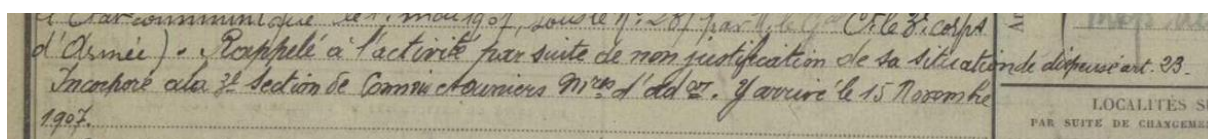 communiqué le 1r mai 1907, sous le N° 287 par M. le Gal Ct le 3e corps
d'Armée). Rappelé à l'activité par suite de non justification de sa situation de dispensé art. 23.
Incorporé à la 3e Section de Commis et ouvriers Mres d'adon. Y arrivé le 15 Novembre
1907.
LOCALITÉS
PAR SUITE DE